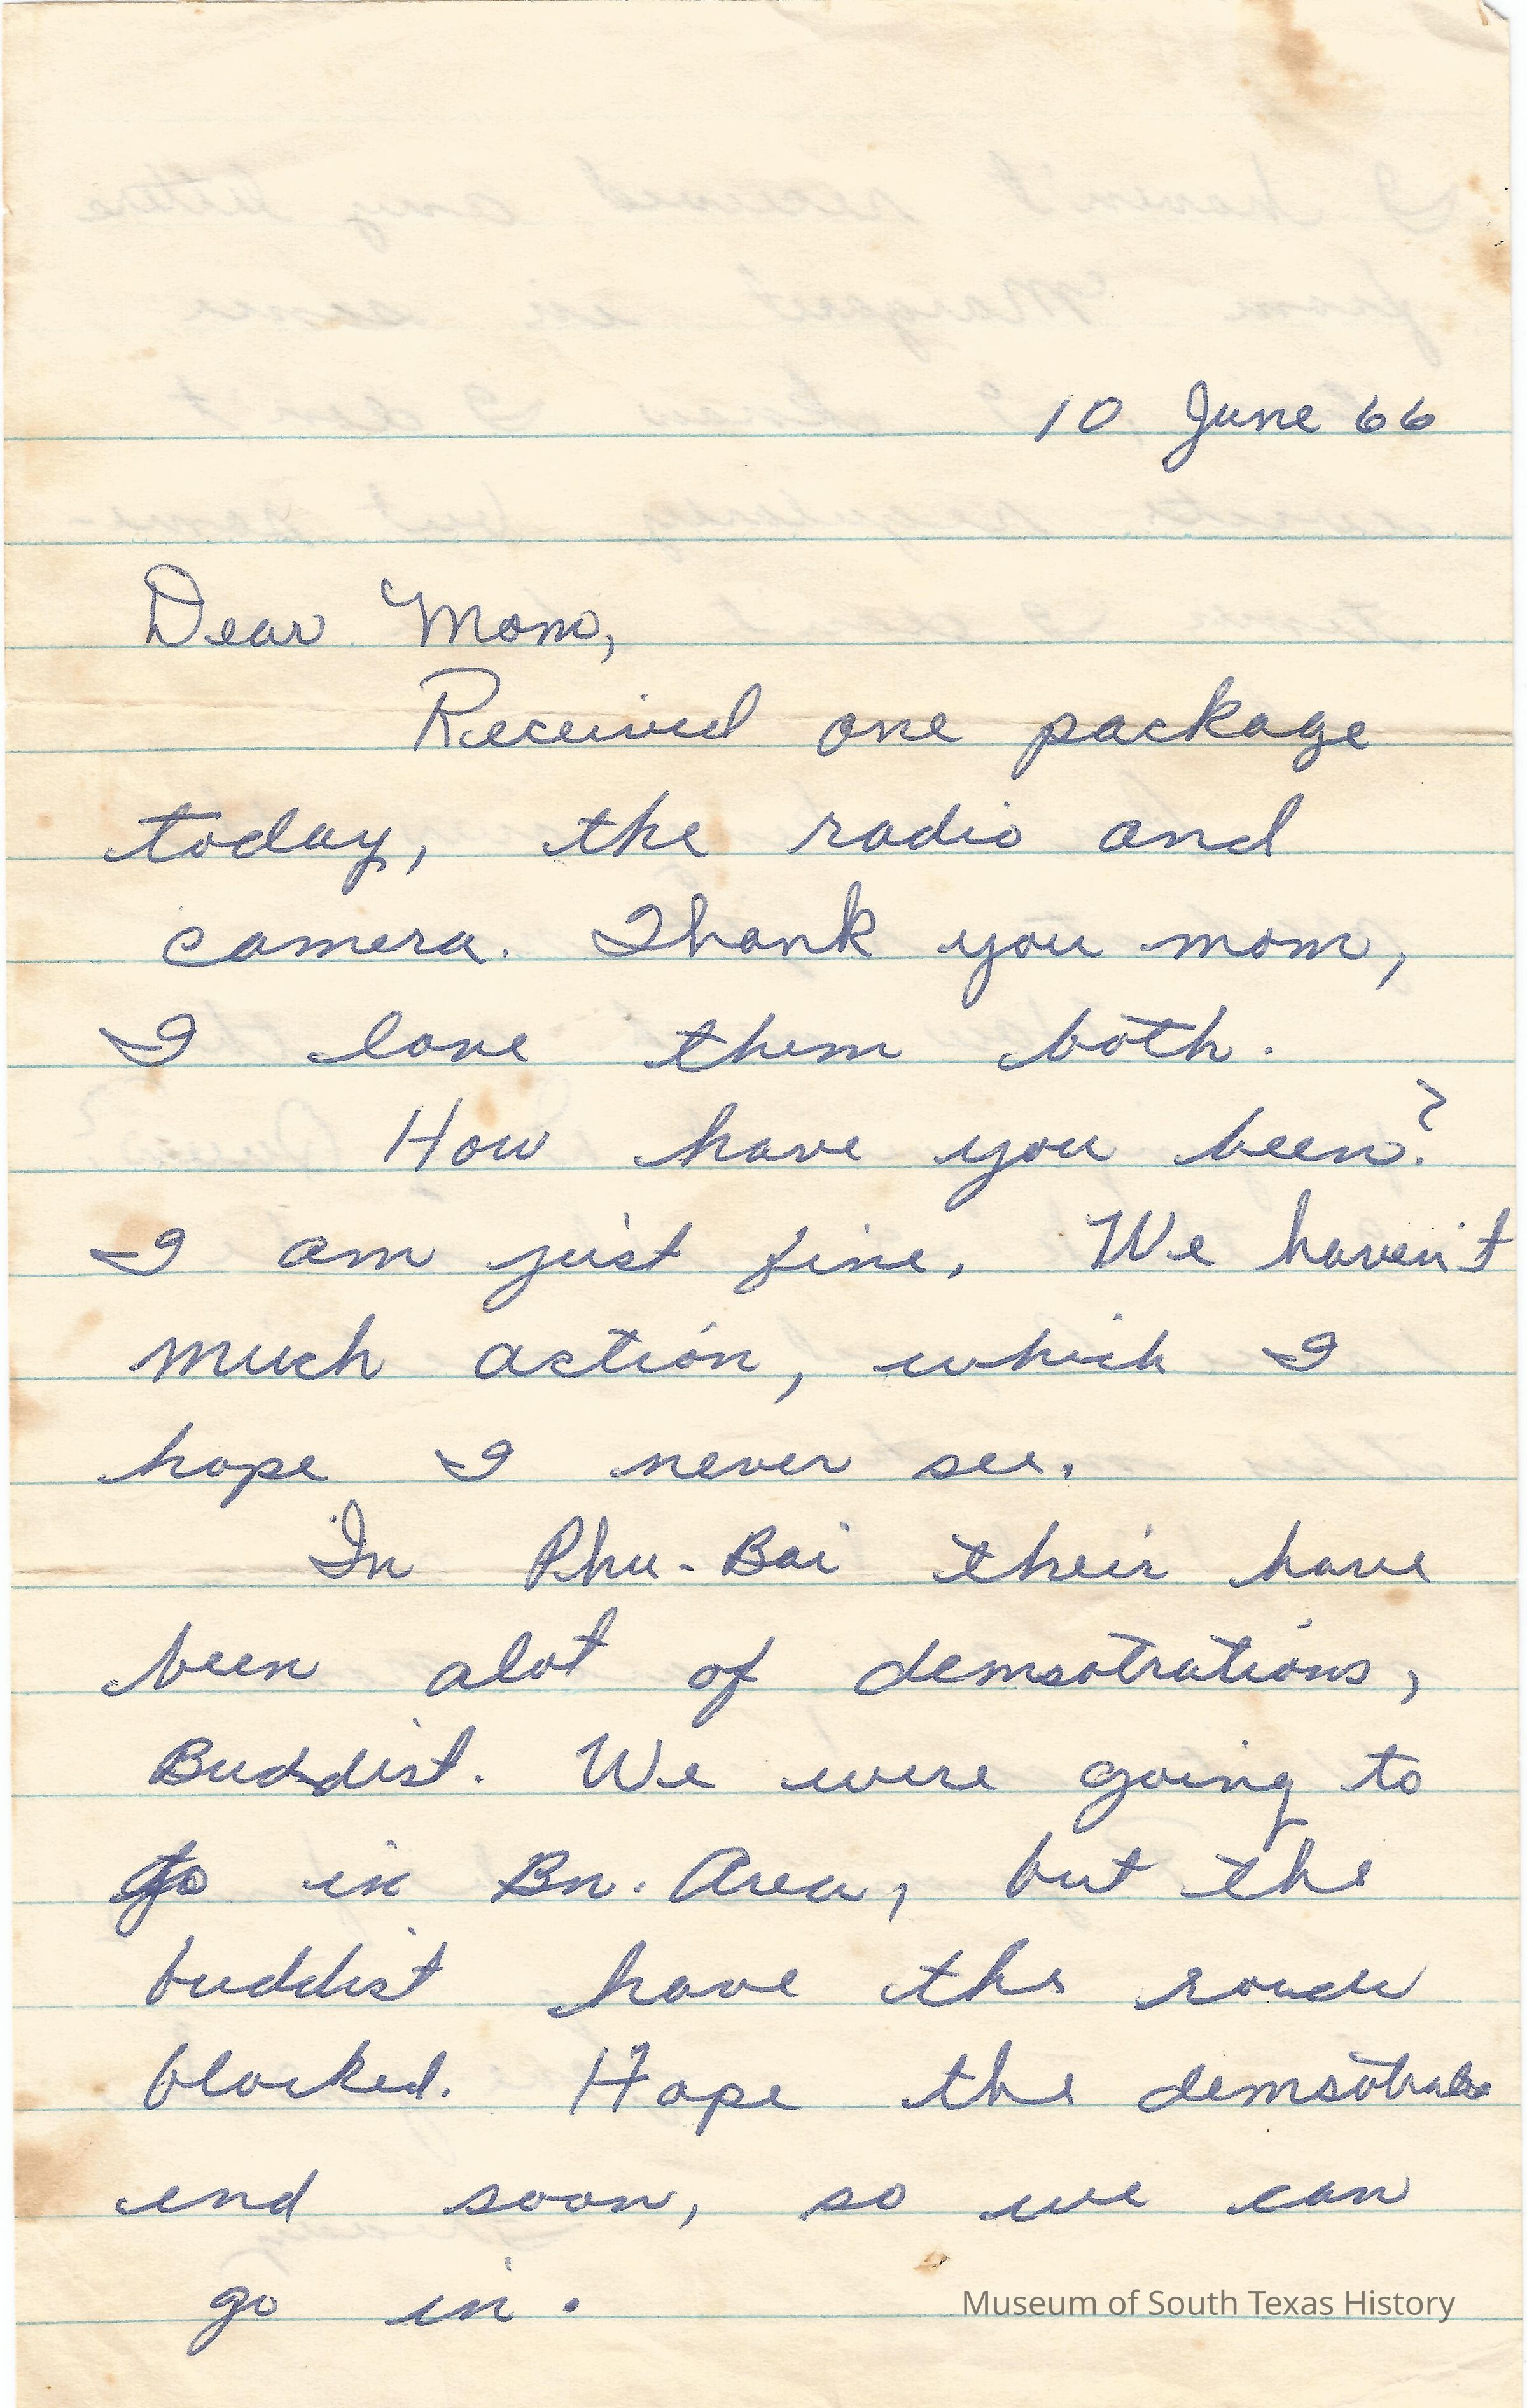 10 June 66
Dear Mom,
Received one package
today, the radio and
camera. Thank you mom,
I love them both.
How have you been?
I am just fine. We haven't
much action, which I
hope I never see.
In Phu-Bai their have
been alot of demsotrations,
Buddist. We were going to
go in Bn. Area, but the
buddist have the
blocked. Hope the
end soon, so we can
go in.
Museum of South Texas History